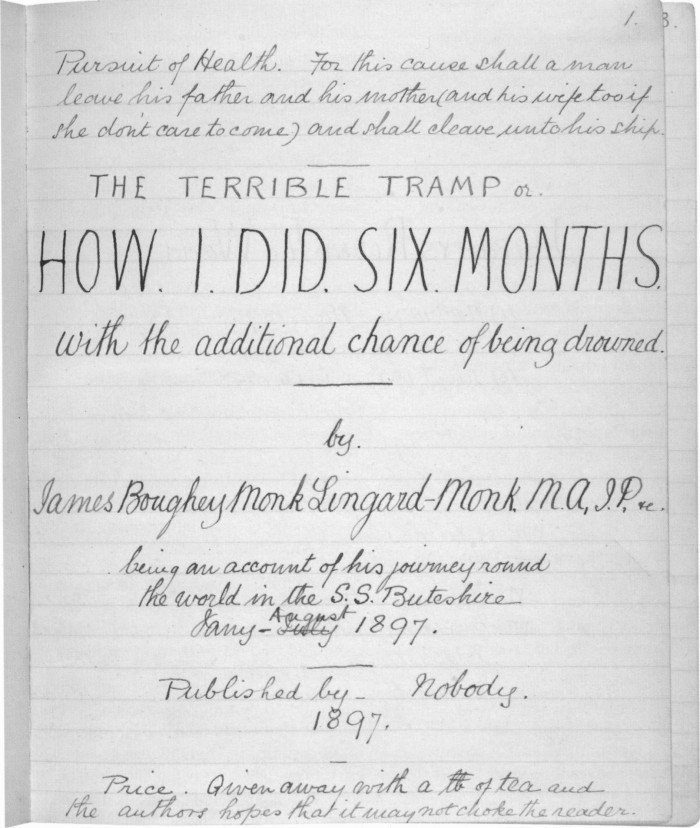 1. 3.
Pursuit of Health. For this cause shall a man
leave his father and his mother (and his wife too if
she don't care to come) and shall cleave unto his ship.
THE TERRIBLE TRAMP or.
HOW. I. DID. SIX. MONTHS.
with the additional chance of being drowned.
by.
James Boughey Monk Lingard-Monk. M.A, J.P, &c.
being an account of his journey round
the world in the S.S. Buteshire
August
Jany - July 1897.
Published by - Nobody.
1897.
Price. Given away with a ℔ of tea and
the authors hopes that it may not choke the reader.